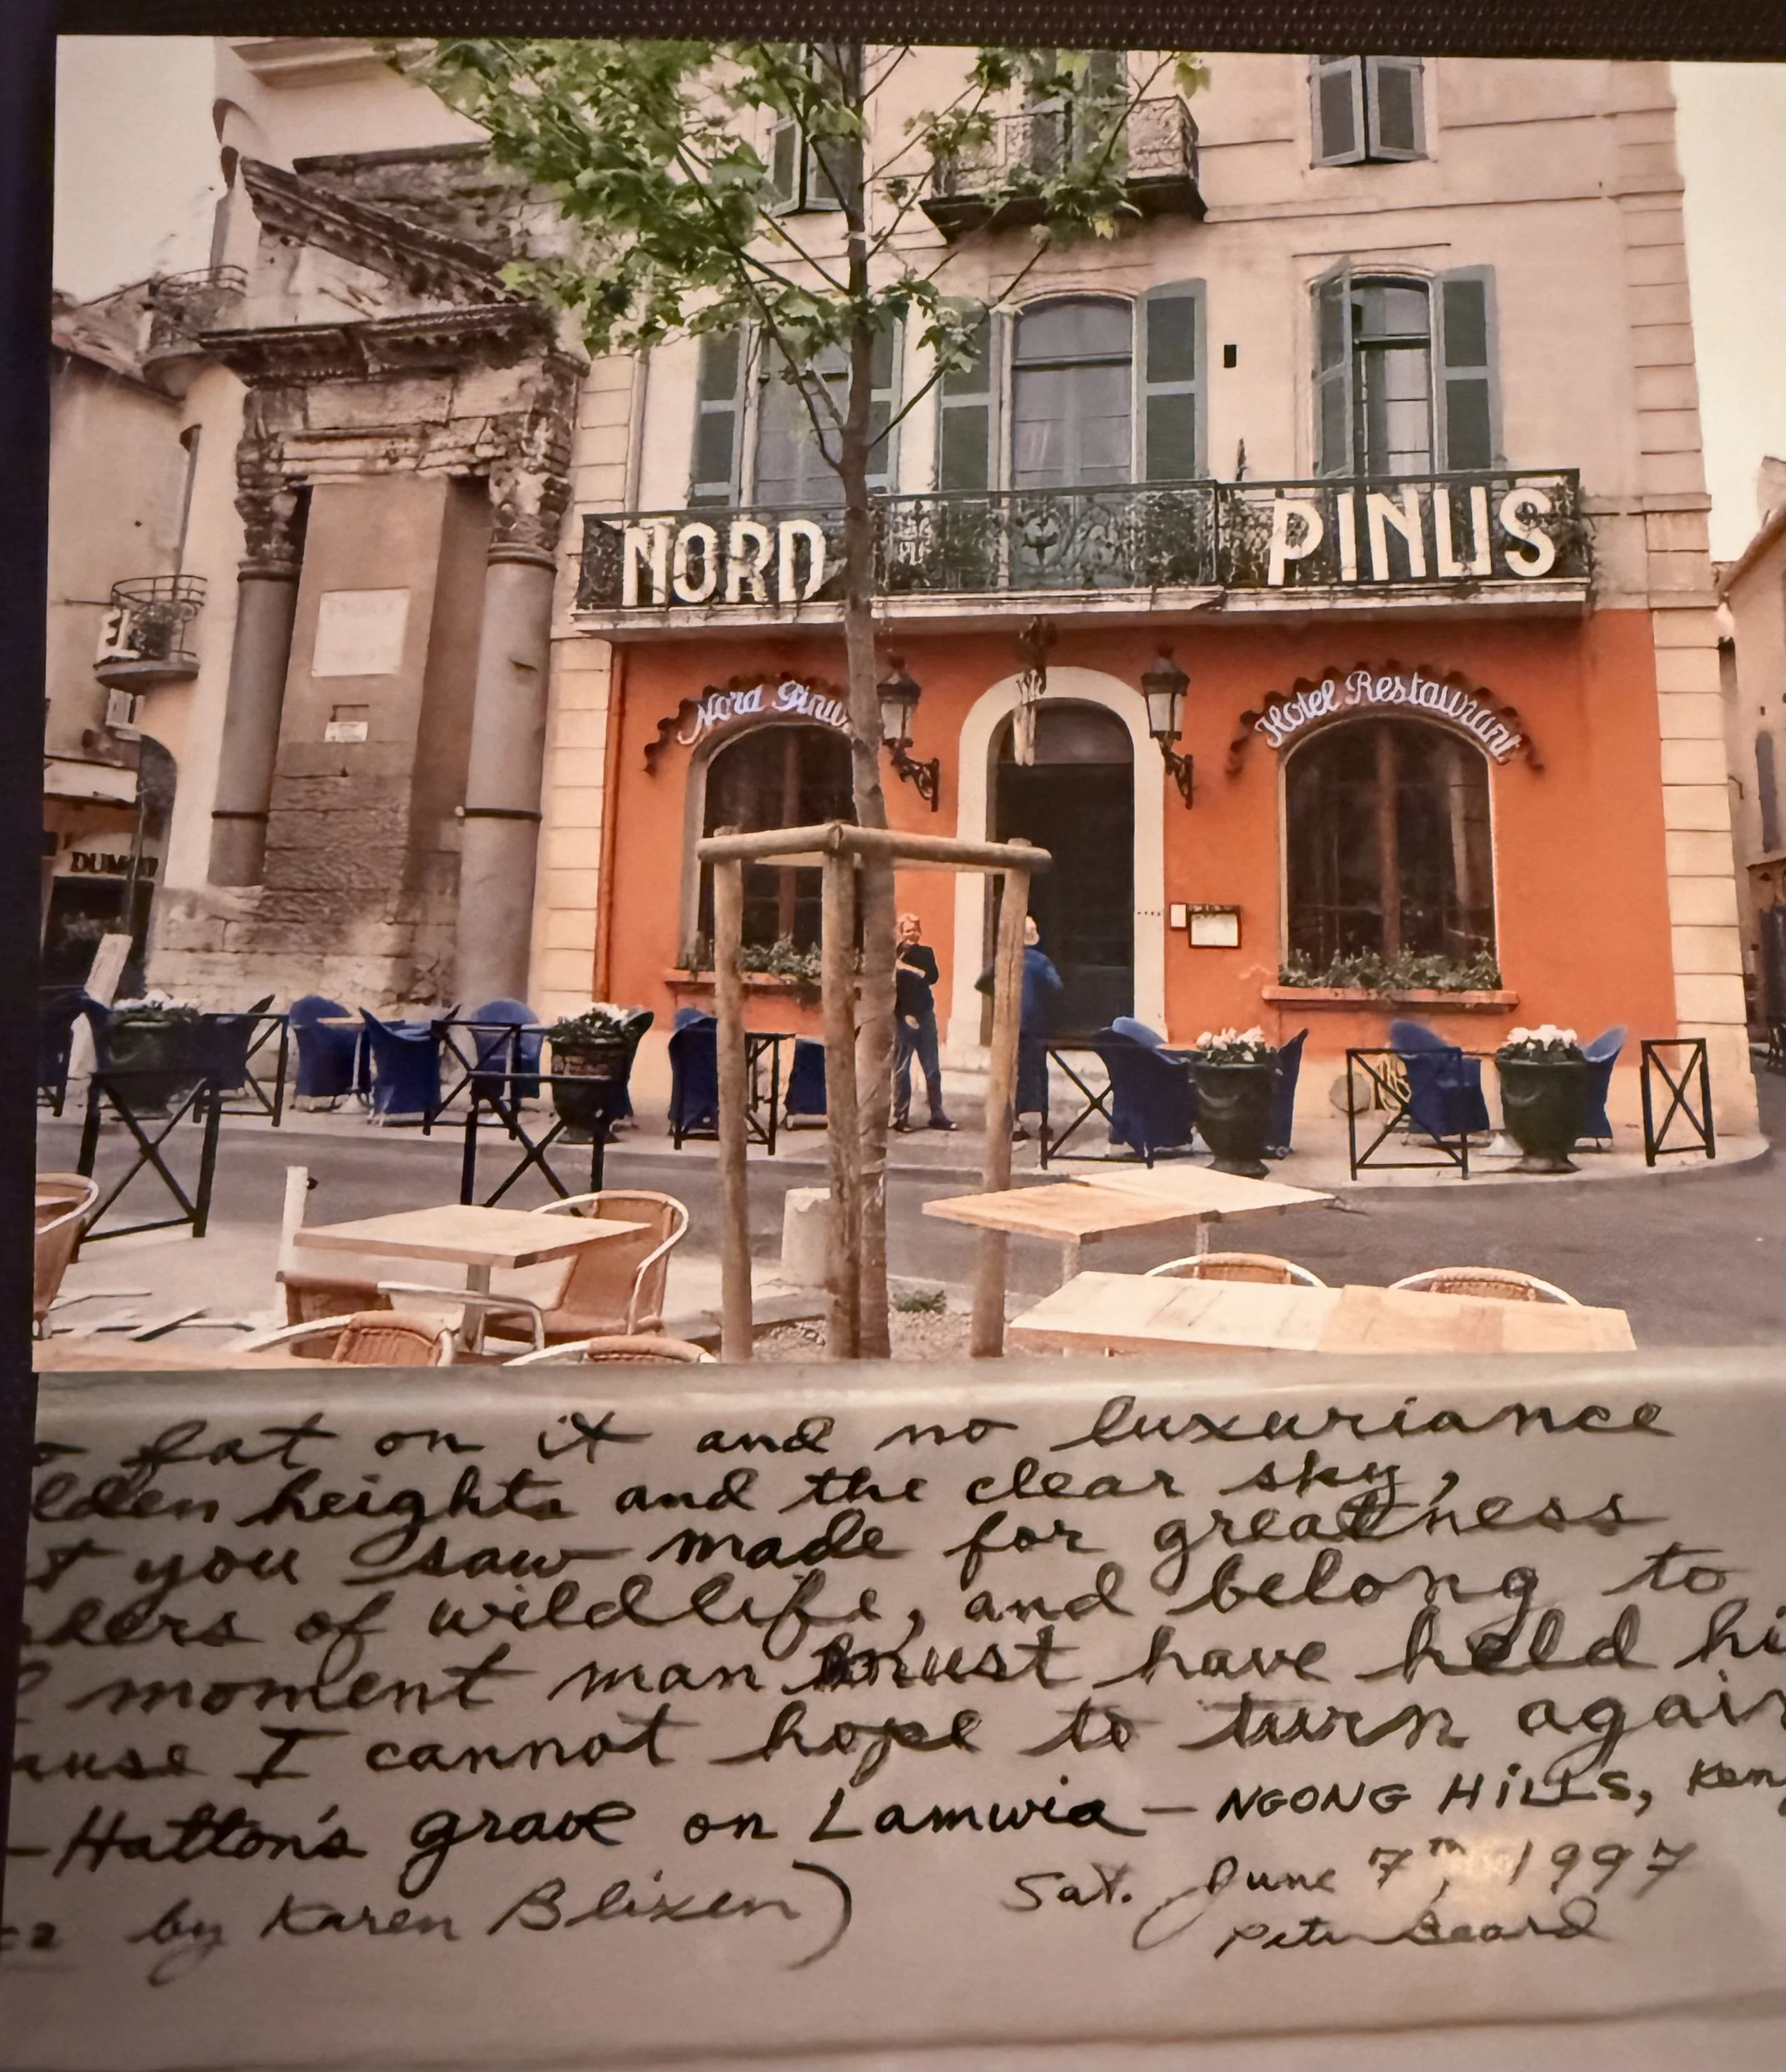 NORD PINUS
Nord Pinus
Hotel Restaurant
fat on it and no luxuriance
lden heights and the clear sky,
t you saw made for greatness
ders of wildlife, and belong to
moment man must have held hi
ause I cannot hope to turn again
-Hatton's grave on Lamwia - NGONG HiLLS, Ken
by Karen Blixen)
Sat. June 7th, 1997
Peter Beard